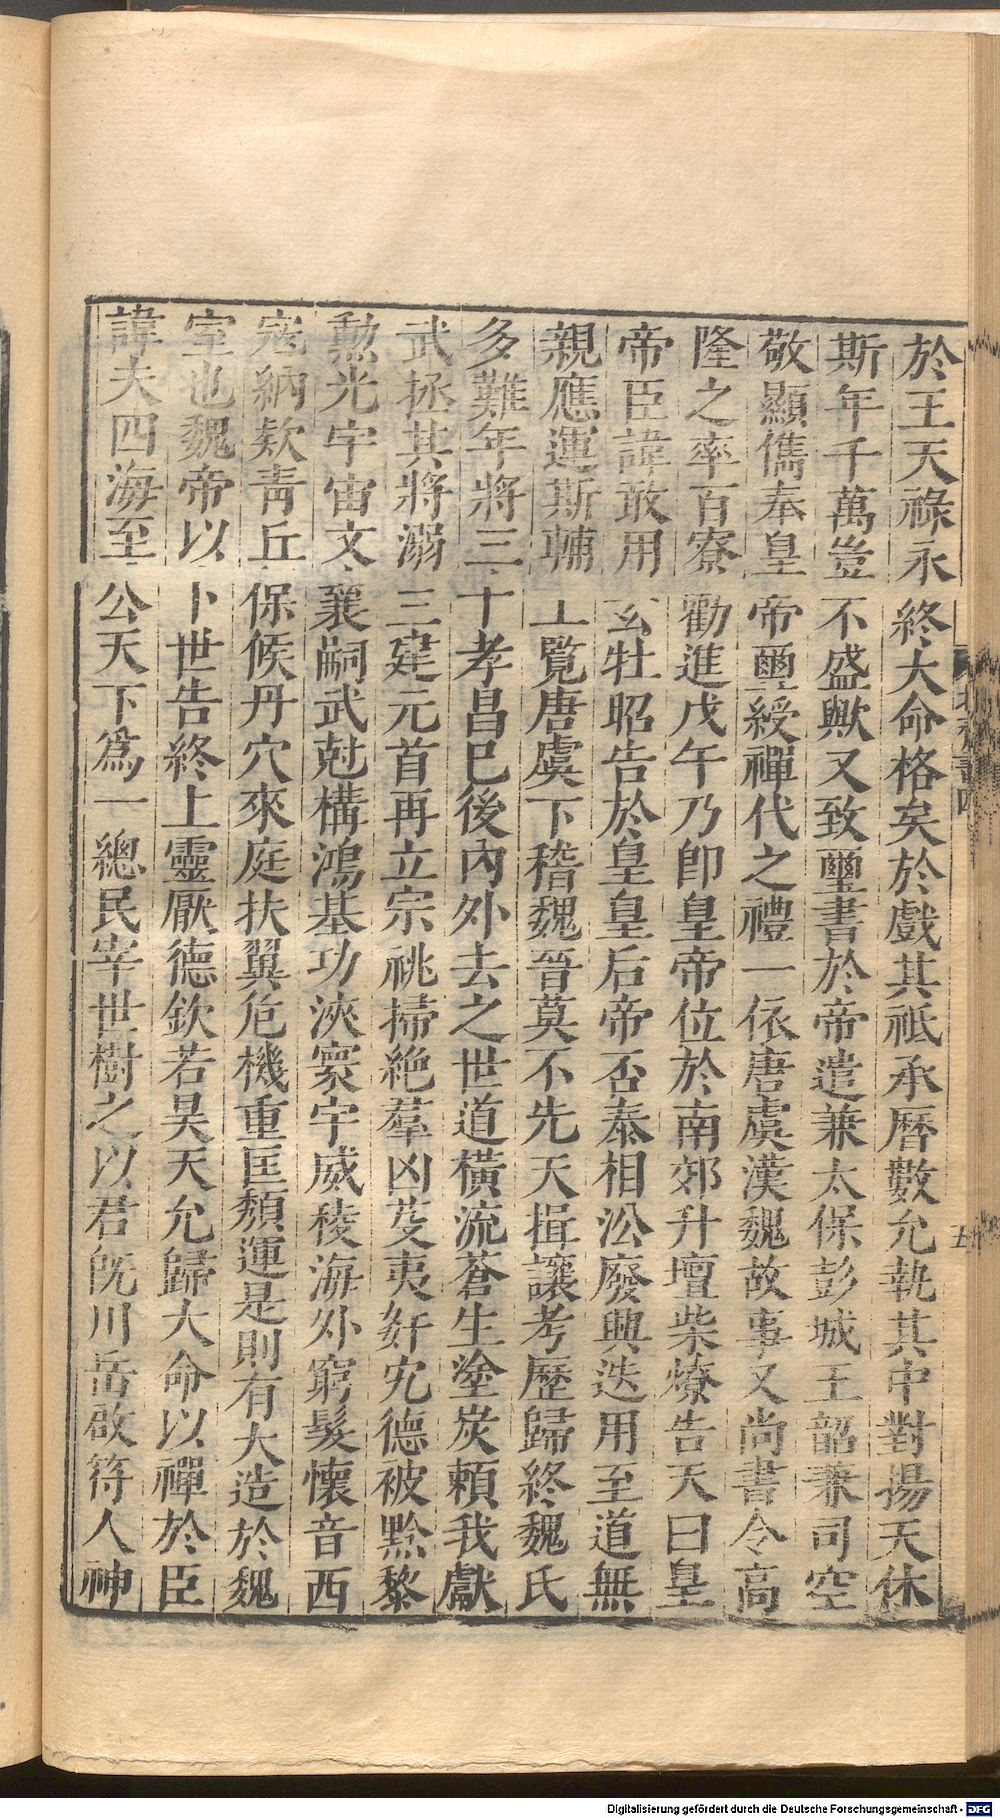 於王天祿永終大命格矣於戲其祗承曆數允執其中對揚天休
斯年千萬豈不盛歟又致璽書於帝遣兼太保彭城王韶兼司空
敬顯儁奉皇帝璽綬禪代之禮一依唐虞漢魏故事又尚書令高
隆之率百寮勸進戊午乃卽皇帝位於南郊升壇柴燎告天曰皇
帝臣諱敢用玄牡昭告於皇皇后帝否泰相沿廢興迭用至道無
親應運斯輔上覽唐虞下稽魏晉莫不先天揖讓考歷歸終魏氏
多難年將三十孝昌已後內外去之世道橫流蒼生塗炭賴我獻
武拯其將溺三建元首再立宗祧掃絕羣凶芟夷奸宄德被黔黎
勲光宇宙文襄嗣武尅構鴻基功浹寰宇威稜海外窮髮懷音西
寇納款青丘保候丹穴來庭扶翼危機重匡頹運是則有大造於魏
室也魏帝以卜世告終上靈厭德欽若昊天允歸大命以禪於臣
諱夫四海至公天下爲一總民宰世樹之以君旣川岳啟符人神
五
Digitalisierung gefördert durch die Deutsche Forschungsgemeinschaft - DFG